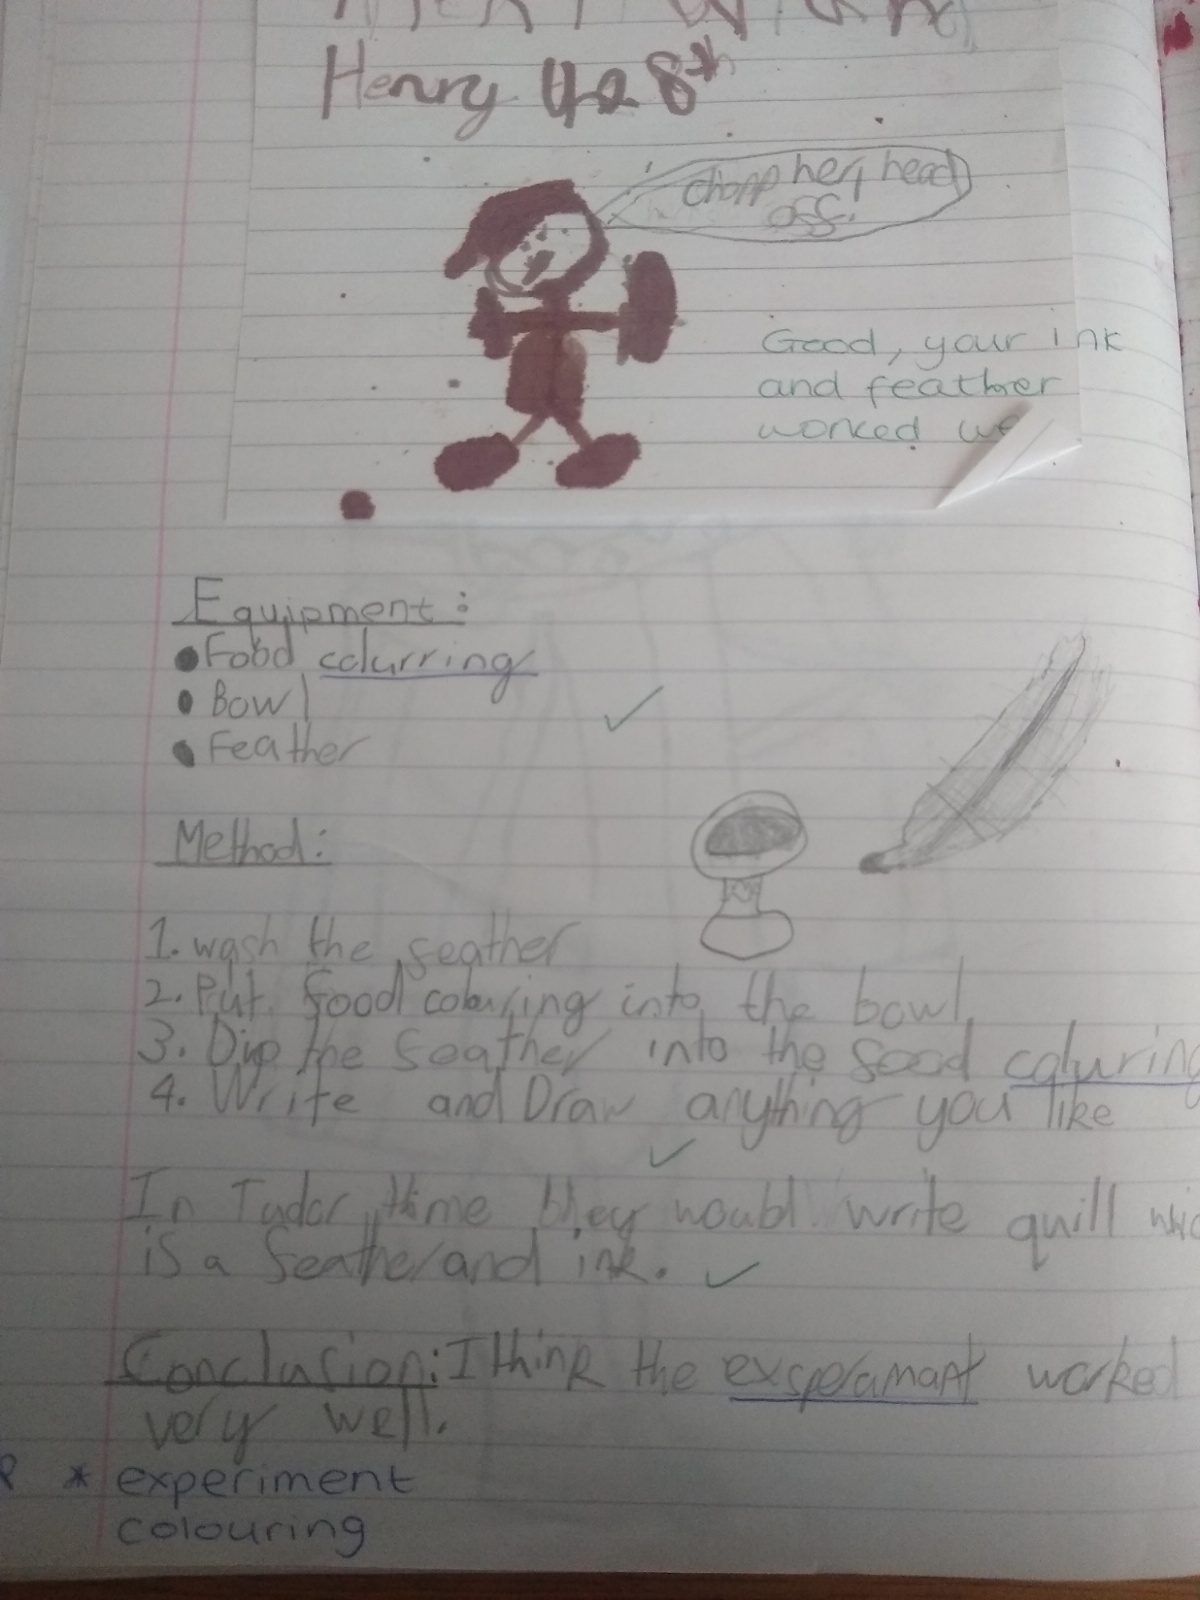 Henry the 8th
chopp her head
off!
Good, your ink
and feather
worked we
Equipment:
• Food colurring
• Bowl
• Feather
Method:
1. wash the feather
2. Put food colouring into the bowl
3. Dip the feather into the food coluring
4. Write and Draw anything you like
In Tudor time they would write quill whic
is a feather and ink.
Conclusion: I think the experamant worked
very well.
* experiment
colouring